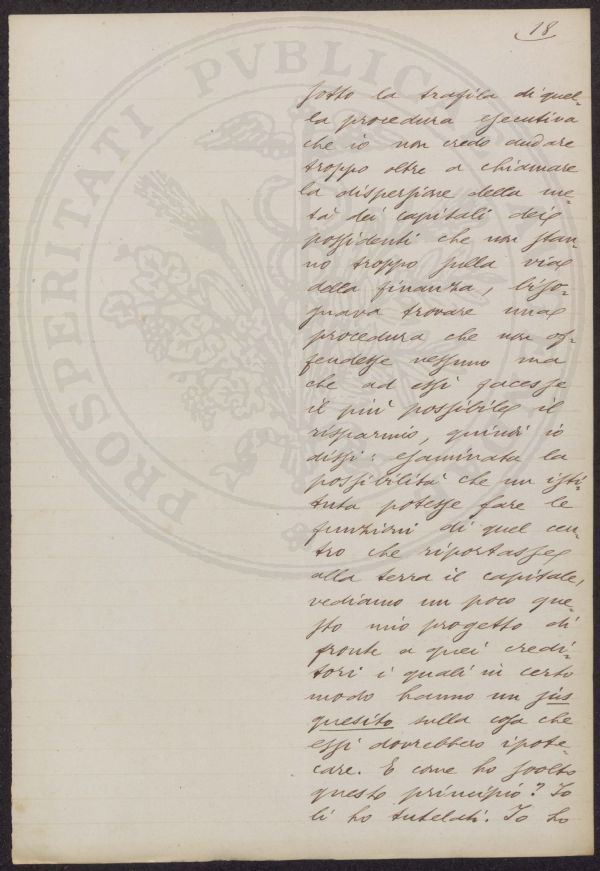 18
PROSPERITATI PVBLICAE
sotto la trafila di quel-
la procedura esecutiva
che io non credo andare
troppo oltre a chiamare
la dispersione della me-
tà dei capitali dei
possidenti che non stan-
no troppo sulla via
della finanza, biso-
gnava trovare una
procedura che non of-
fendesse nessuno ma
che ad essi facesse
il più possibile il
risparmio, quindi io
dissi: esaminata la
possibilità che un isti-
tuto potesse fare le
funzioni di quel cen-
tro che riportasse
alla terra il capitale,
vediamo un poco que-
sto mio progetto di
fronte a quei credi-
tori i quali in certo
modo hanno un jus
quesito sulla cosa che
essi dovrebbero ipote-
care. E come ho svolto
questo principio? Io
li ho tutelati. Io ho